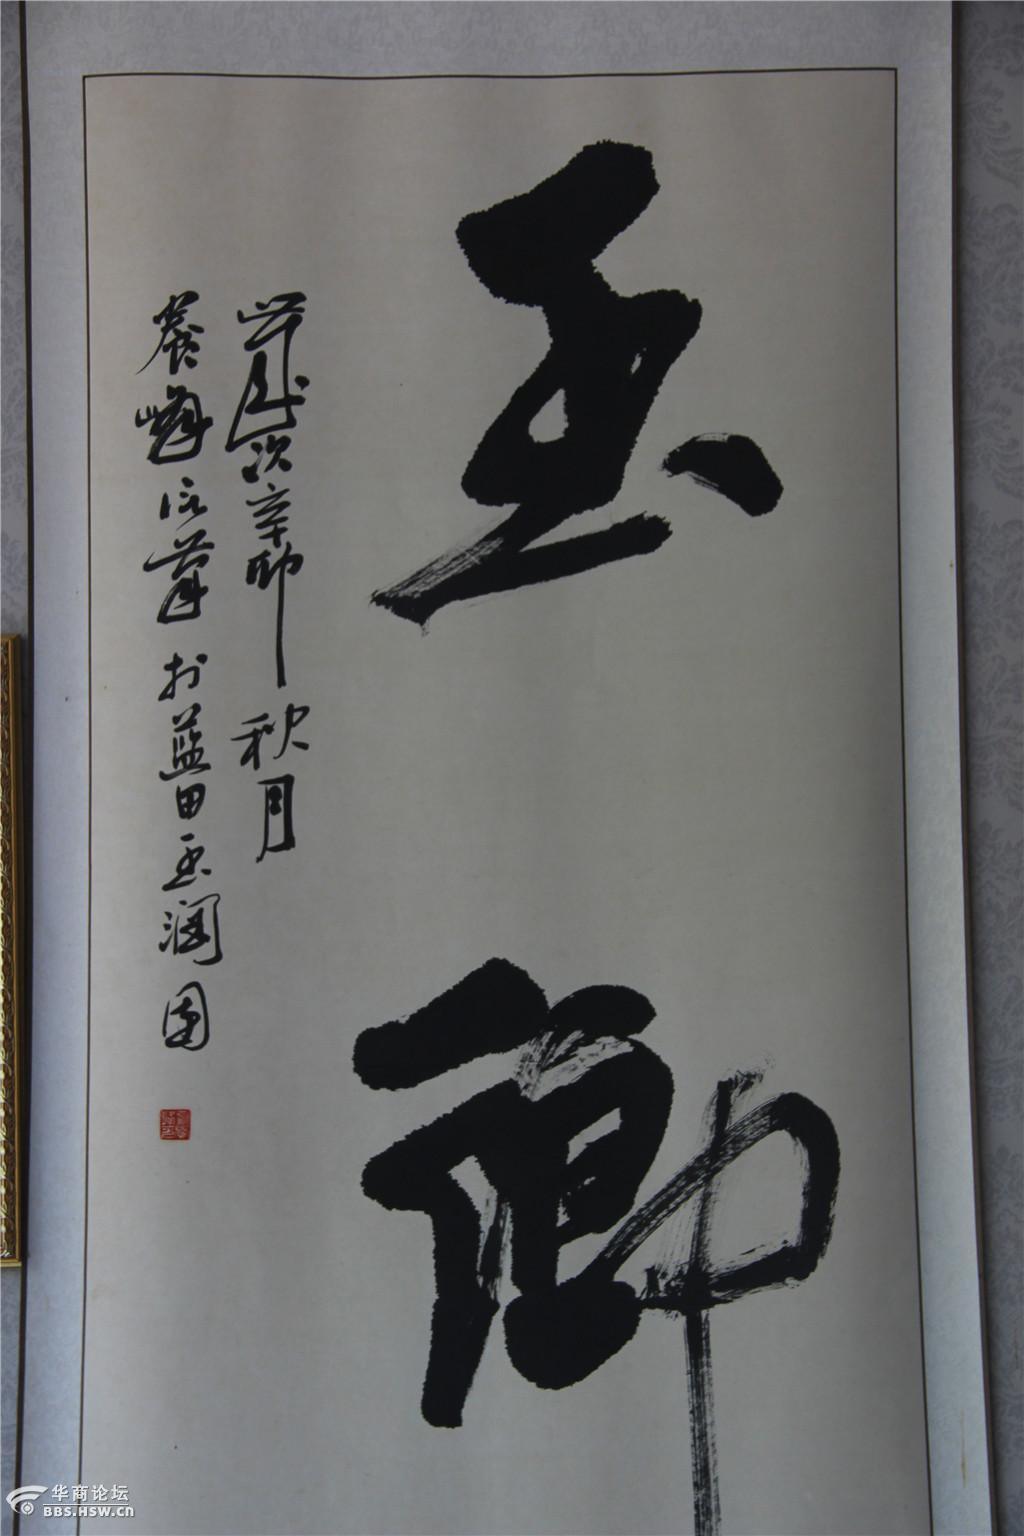 玉卿
岁次辛卯秋月
晨峰信笔于蓝田玉润园
华商论坛
BBS.HSW.CN